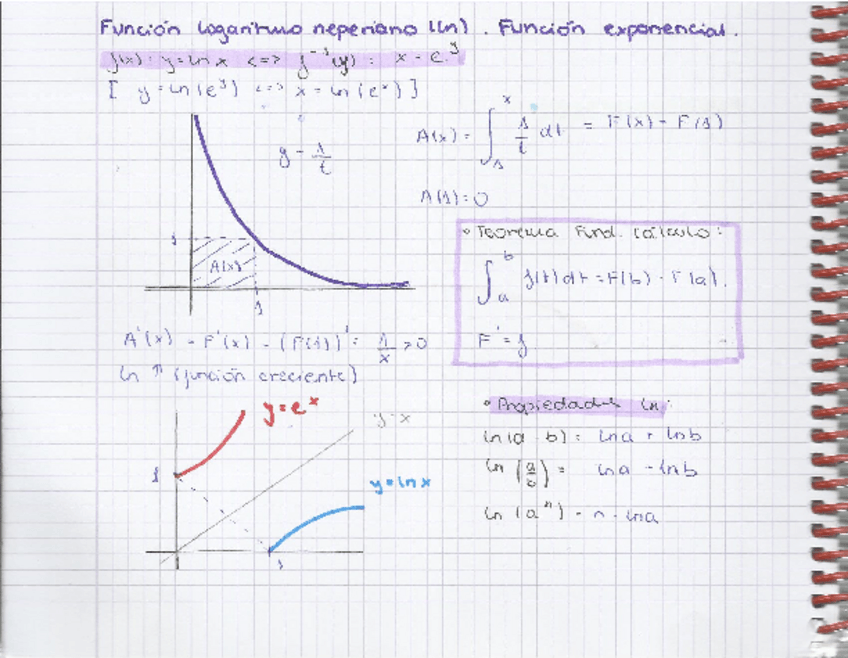 Función logaritmo neperiano (ln). Función exponencial.
f(x): y = ln x <=> f⁻¹(y): x = e^y
[ y = ln(e^y) <=> x = ln(e^x) ]
y = 1/t
1
A(x)
1
A(x) = ∫₁ˣ 1/t dt = F(x) - F(1)
A(1) = 0
• Teorema Fund. Cálculo:
∫ₐᵇ f(t)dt = F(b) - F(a).
F' = f
A'(x) = F'(x) - (F(1))' = 1/x > 0
ln ↑ (función creciente)
y = e^x
y = x
1
y = ln x
1
• Propiedades ln:
ln(a · b) = ln a + ln b
ln (a/b) = ln a - ln b
ln (a^n) = n · ln a